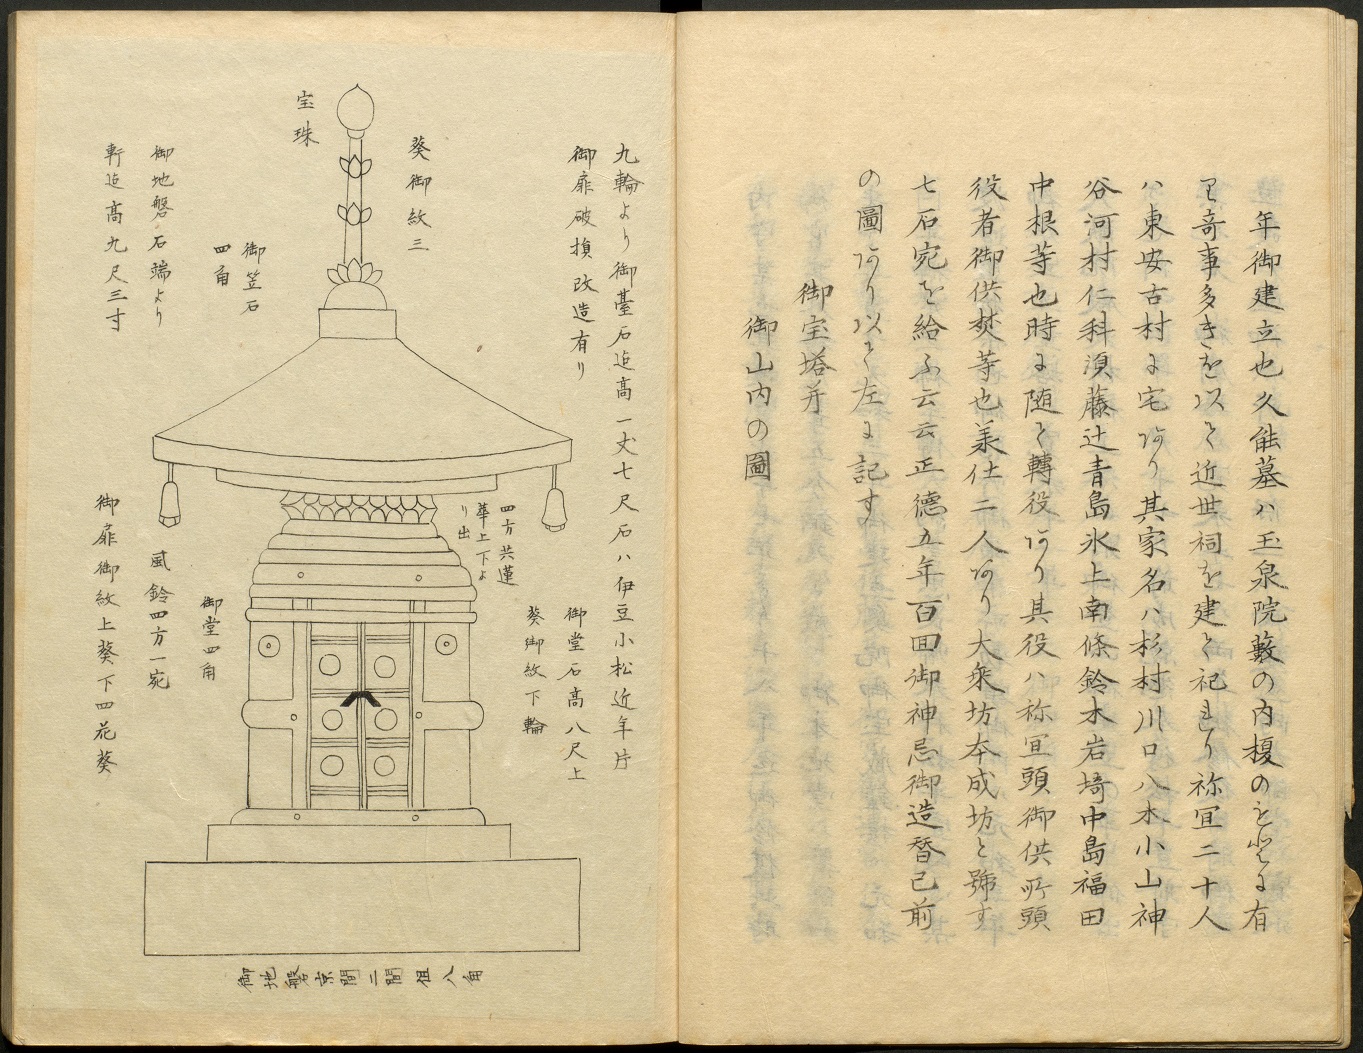 年御建立也久能墓ハ玉泉院藪の内榎のもとに有
り奇事多きを以て近世祠を建て祀れり祢宜二十人
ハ東安古村に宅あり其家名ハ杉村川口八木小山神
谷河村仁科須藤辻青島氷上南條鈴木岩埼中島福田
中根等也時に随て轉役あり其役ハ祢宜頭御供所頭
役者御供焚等也業仕二人あり大乗坊本成坊と号す
七石宛を給ふ云云正徳五年百回御神忌御造替已前
の圖あり以て左に記す
御宝塔并
御山内の圖
九輪より御臺石迠高一丈七尺石ハ伊豆小松近年片
御扉破損改造有り
葵御紋三
宝珠
御笠石
四角
御地磐石端より
軒迠高九尺三寸
四方共蓮
華上下よ
り出
御堂石高八尺上
葵御紋下輪
御堂四角
風鈴四方一宛
御扉御紋上葵下四花葵
御地磐京間二間但八角